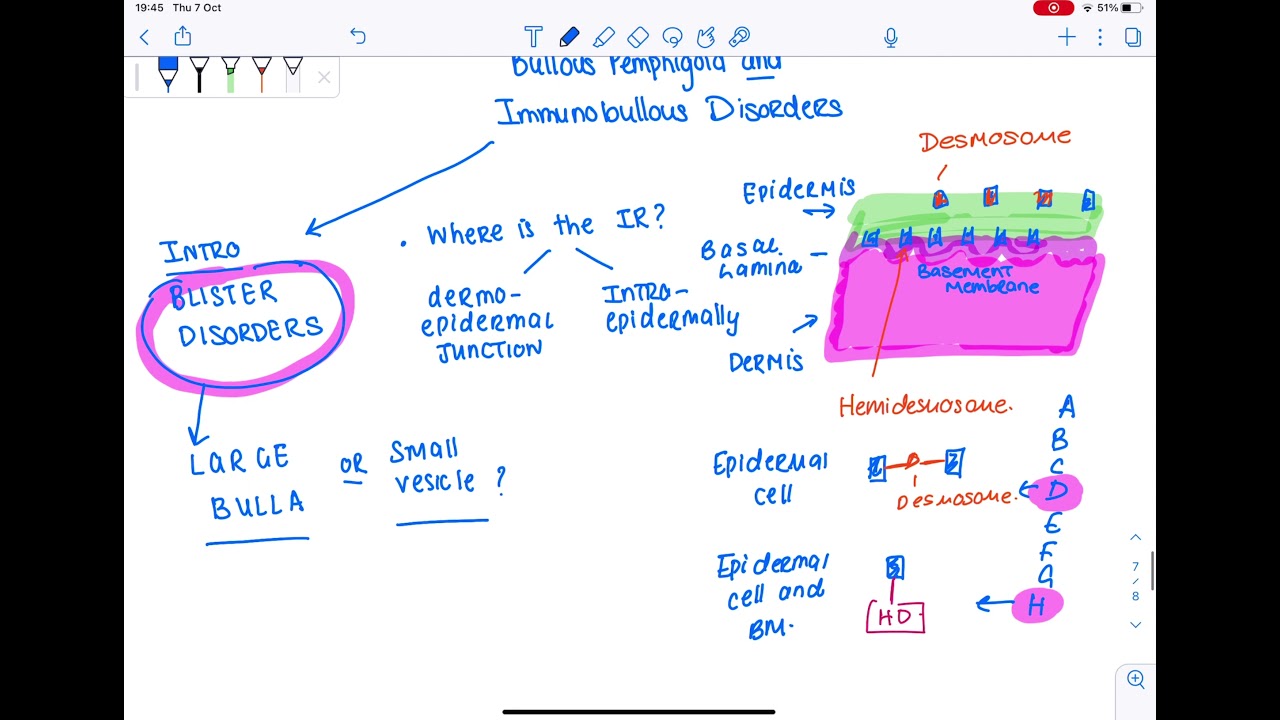 19:45 Thu 7 Oct
51%
Bullous Pemphigoid and
Immunobullous Disorders
INTRO
BLISTER
DISORDERS
LARGE
BULLA
OR
Small
vesicle ?
• Where is the IR?
dermo-
epidermal
JUNCTION
INTRA-
epidermally
Desmosome
Epidermis
Basal
Lamina
Basement
Membrane
Dermis
Hemidesmosome.
Epidermal
cell
Desmosome.
Epidermal
cell and
BM.
HD
A
B
C
D
E
F
G
H
7
/
8